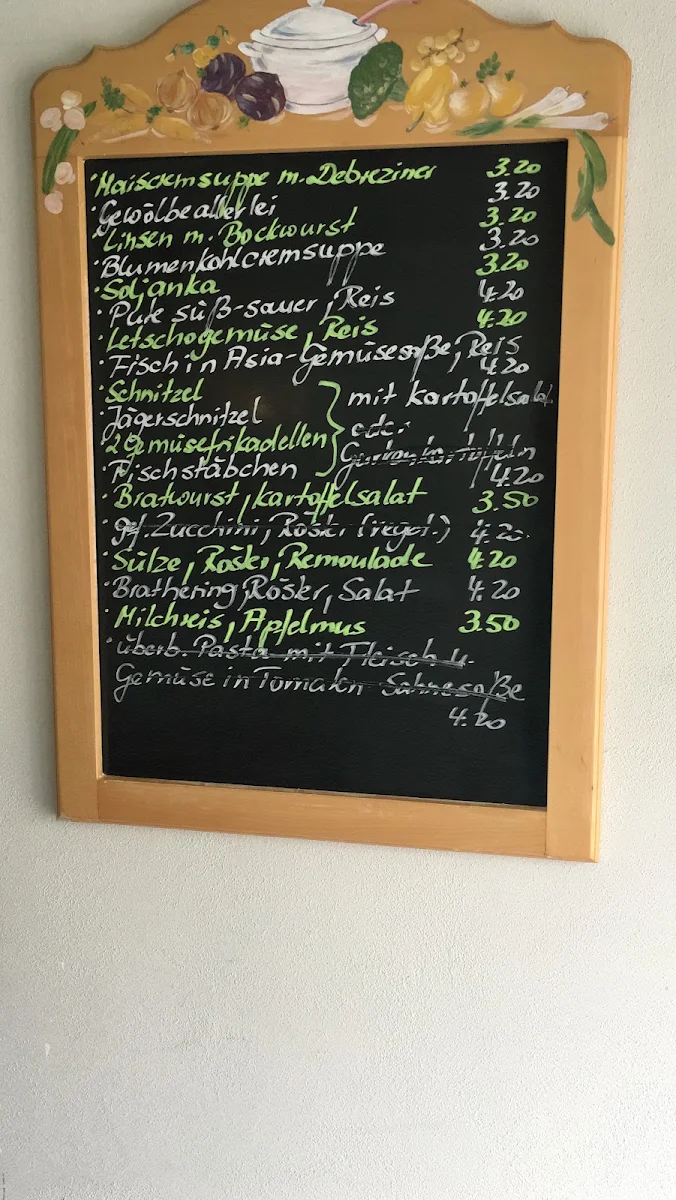 · Maiscremsuppe m. Debreziner 3.20
· Gewölbeallerlei 3.20
· Linsen m. Bockwurst 3.20
· Blumenkohlcremsuppe 3.20
· Soljanka 3.20
· Pute süß-sauer, Reis 4.20
· Letschogemüse, Reis 4.20
· Fisch in Asia-Gemüsesoße, Reis
4.20
· Schnitzel } mit Kartoffelsalat
· Jägerschnitzel oder
· 2 Gemüsefrikadellen Gurken, Kartoffeln
· Fischstäbchen 4.20
· Bratwurst, Kartoffelsalat 3.50
· gef. Zucchini, Röster (veget.) 4.20
· Sülze, Röster, Remoulade 4.20
· Brathering, Röster, Salat 4.20
· Milchreis, Apfelmus 3.50
· überb. Pasta mit Fleisch u.
Gemüse in Tomaten Sahnesoße
4.20